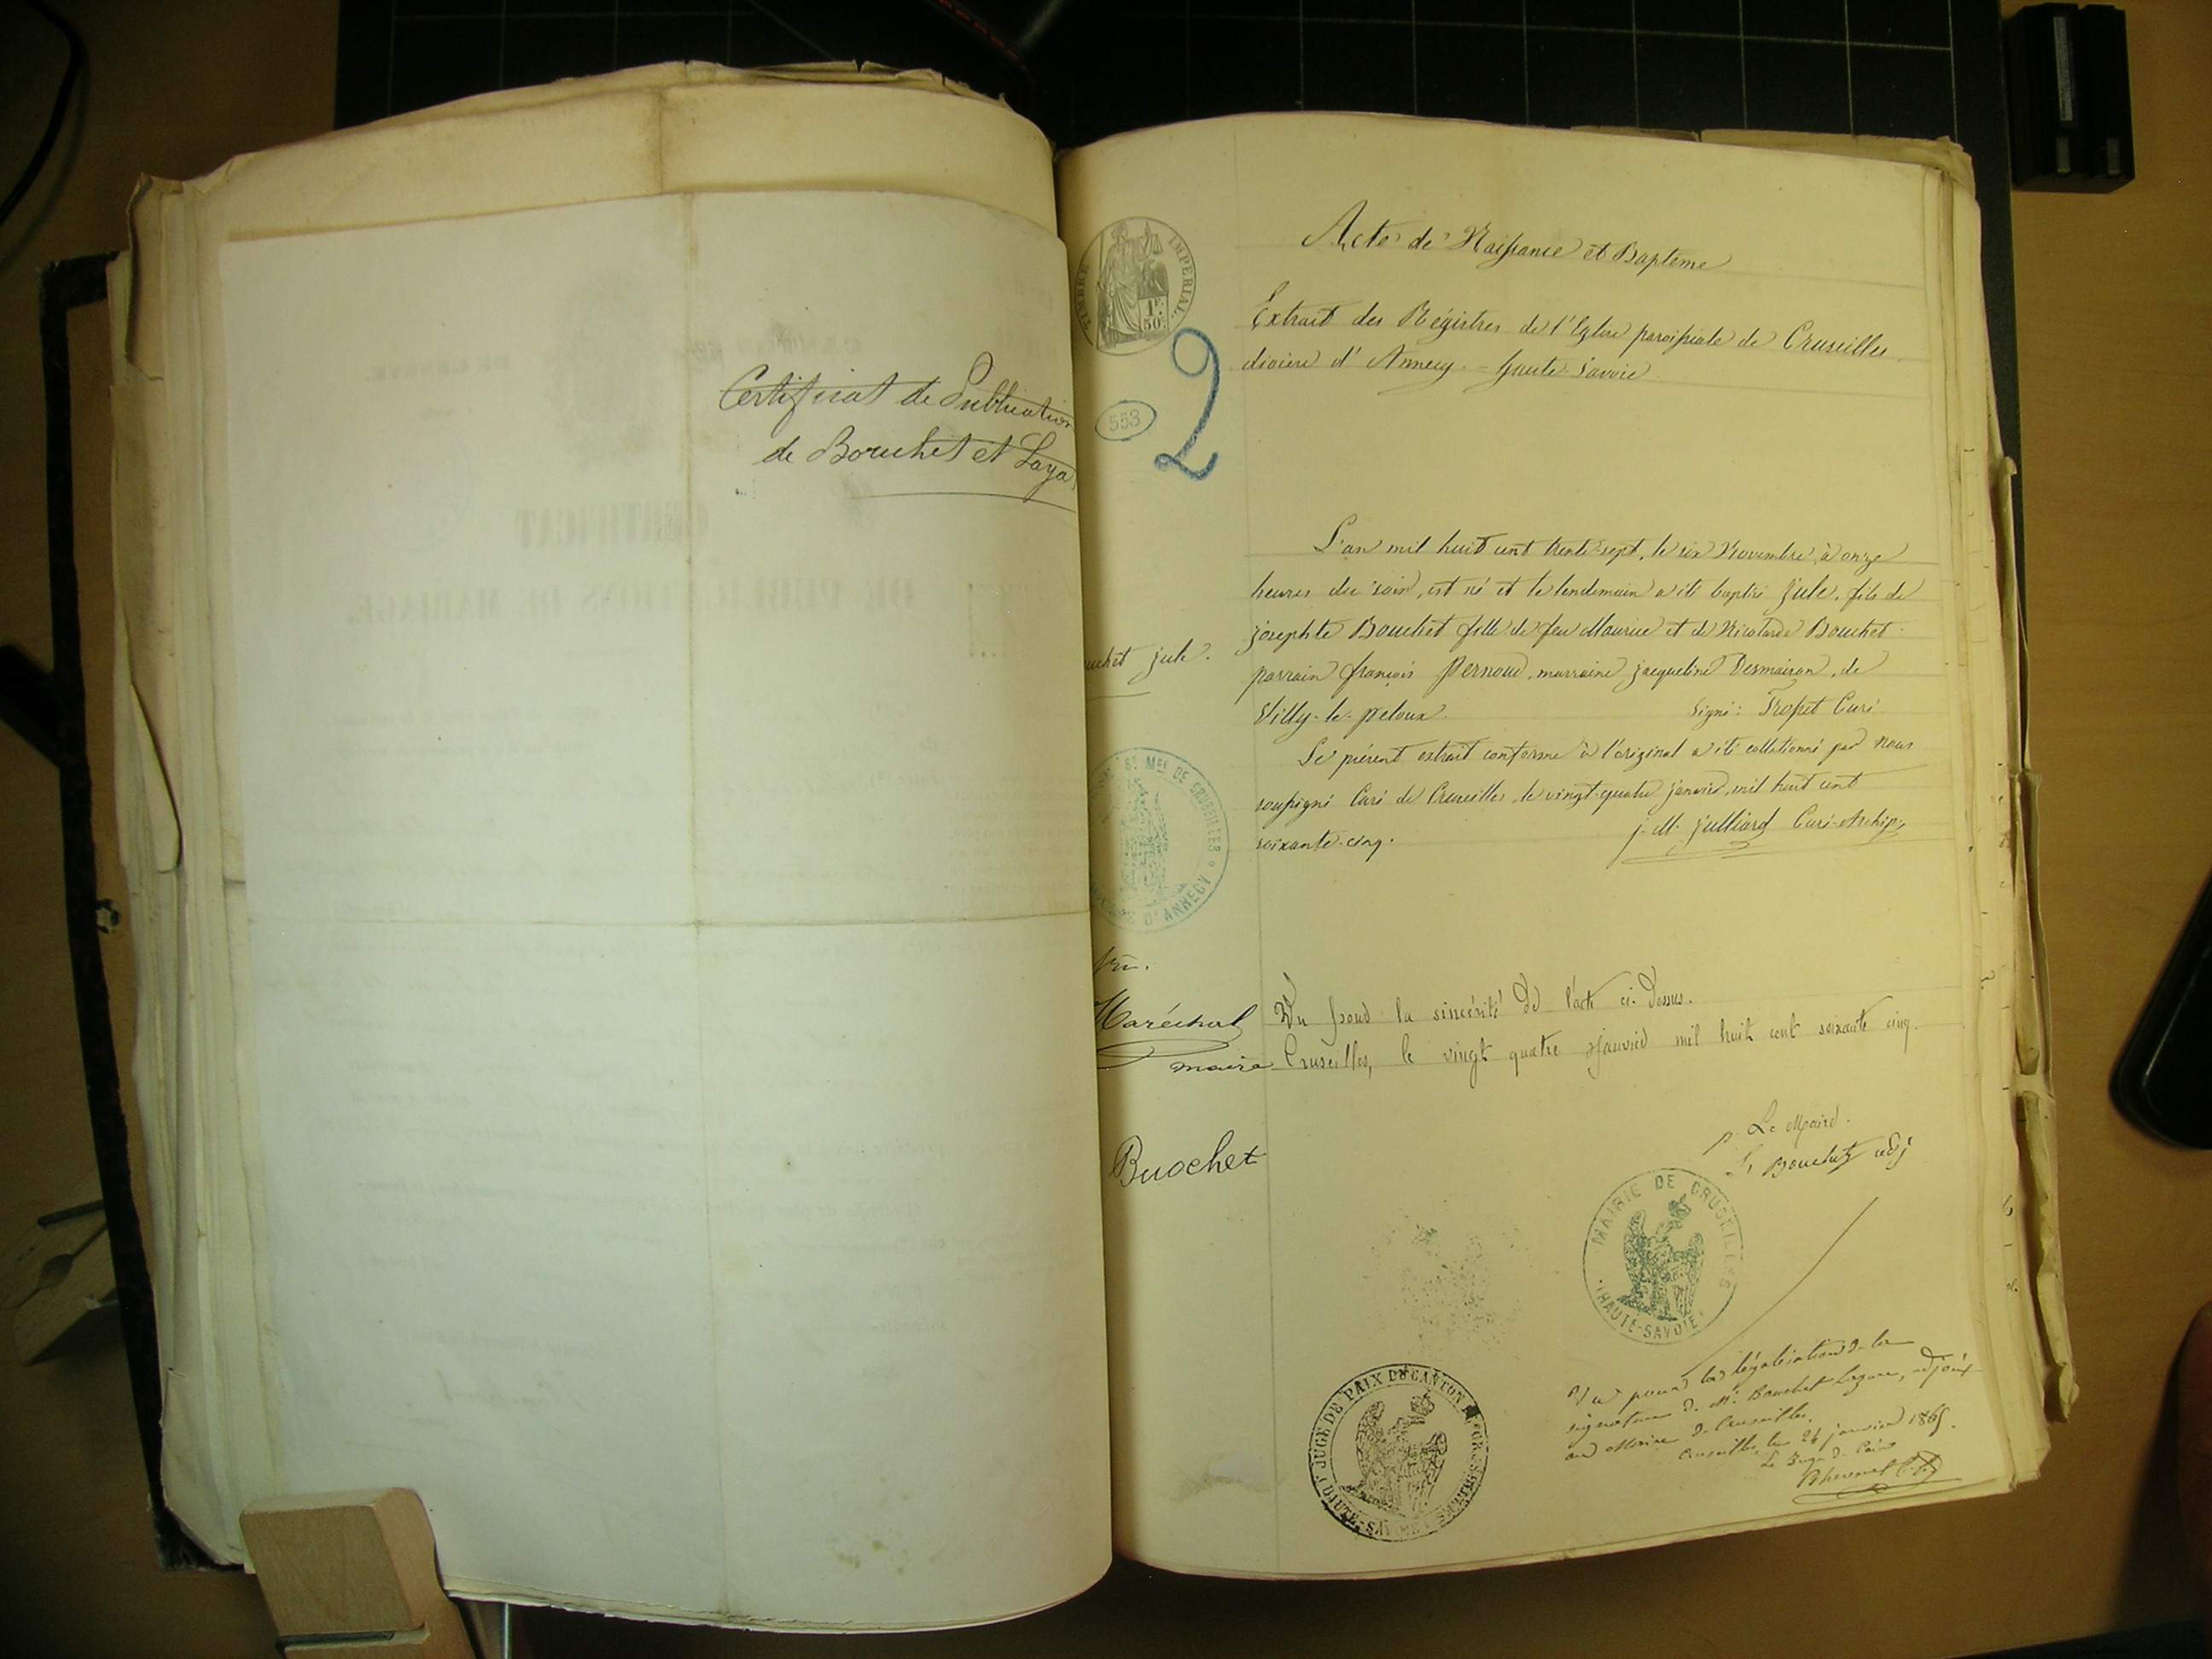 Certificat de Publication
de Bouchet et Laya
TIMBRE IMPERIAL
1F.
50c.
2
553
Acte de Naissance et Baptême
Extrait des Régistres de l'Eglise paroissiale de Cruseilles
diocèse d'Annecy - haute Savoie
L'an mil huit cent trente-sept, le six Novembre, à onze
heures du soir, est né et le lendemain a été baptisé jule, fils de
josephte Bouchet fille de feu Maurice et de Nicolarde Bouchet
parrain françois Pernoud, marraine jacqueline Desmaison, de
Villy-le-peloux. signé: Curé
uchet jule.
Le présent extrait conforme à l'original a été collationné par nous
soussigné Curé de Cruseilles, le vingt-quatre janvier, mil huit cent
soixante-cinq.
j. M. julliard Curé-Archip.
ST MCE DE CRUSEILLES
D'ANNECY
Maréchal
maire
Vu pour la sincérité de l'acte ci-dessus.
Cruseilles, le vingt quatre janvier mil huit cent soixante cinq.
Buochet
p. Le Maire.
Bouchet adj
MAIRIE DE CRUSEILLES
(HAUTE-SAVOIE)
JUGE DE PAIX DU CANTON
HAUTE-SAVOIE
Vu pour la légalisation de la
signature de Mr. Bouchet Lazare, adjoint
au Maire de Cruseilles.
Cruseilles, le 24 janvier 1865.
Le Juge de Paix